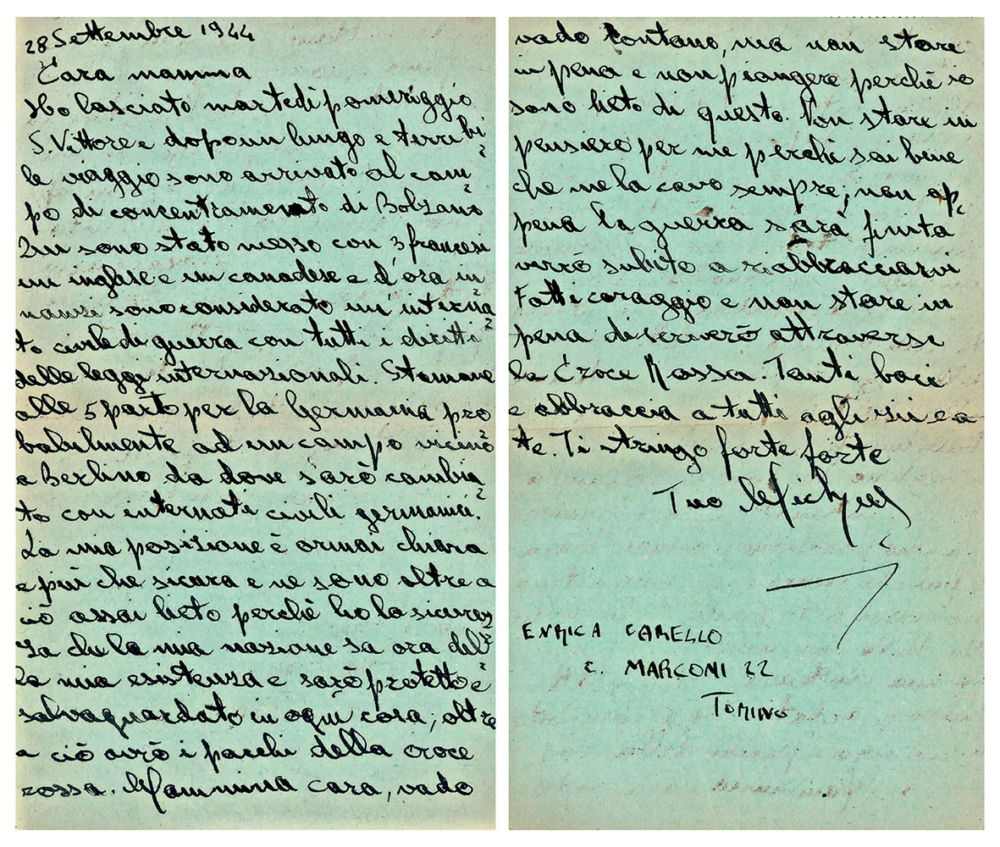 28 Settembre 1944
Cara mamma
Ho lasciato martedì pomeriggio
S. Vittore e dopo un lungo e terribi
le viaggio sono arrivato al cam
po di concentramento di Bolzano
Qui sono stato messo con 3 francesi
un inglese e un canadese e d'ora in
nanzi sono considerato un'interna
to civile di guerra con tutti i diritti
delle leggi internazionali. Stamane
alle 5 parto per la Germania pro
babilmente ad un campo vicino
a Berlino da dove sarò cambia
to con internati civili germanici.
La mia posizione è ormai chiara
e più che sicura e ne sono oltre a
ciò assai lieto perchè ho la sicurez
za che la mia nazione sa ora del
la mia esistenza e sarò protetto e
salvaguardato in ogni cosa, oltre
a ciò avrò i pacchi della croce
rossa. Mammina cara, vado
vado lontano, ma non stare
in pena e non piangere perchè io
sono lieto di questo. Non stare in
pensiero per me perchè sai bene
che me la cavo sempre, non ap
pena la guerra sarà finita
verrò subito a riabbracciarvi
Fatti coraggio e non stare in
pena scriverò attraverso
la Croce Rossa. Tanti baci
e abbraccia a tutti agli zii e a
te. Ti stringo forte forte
Tuo Michel
ENRICA CARELLO
C. MARCONI 22
TORINO